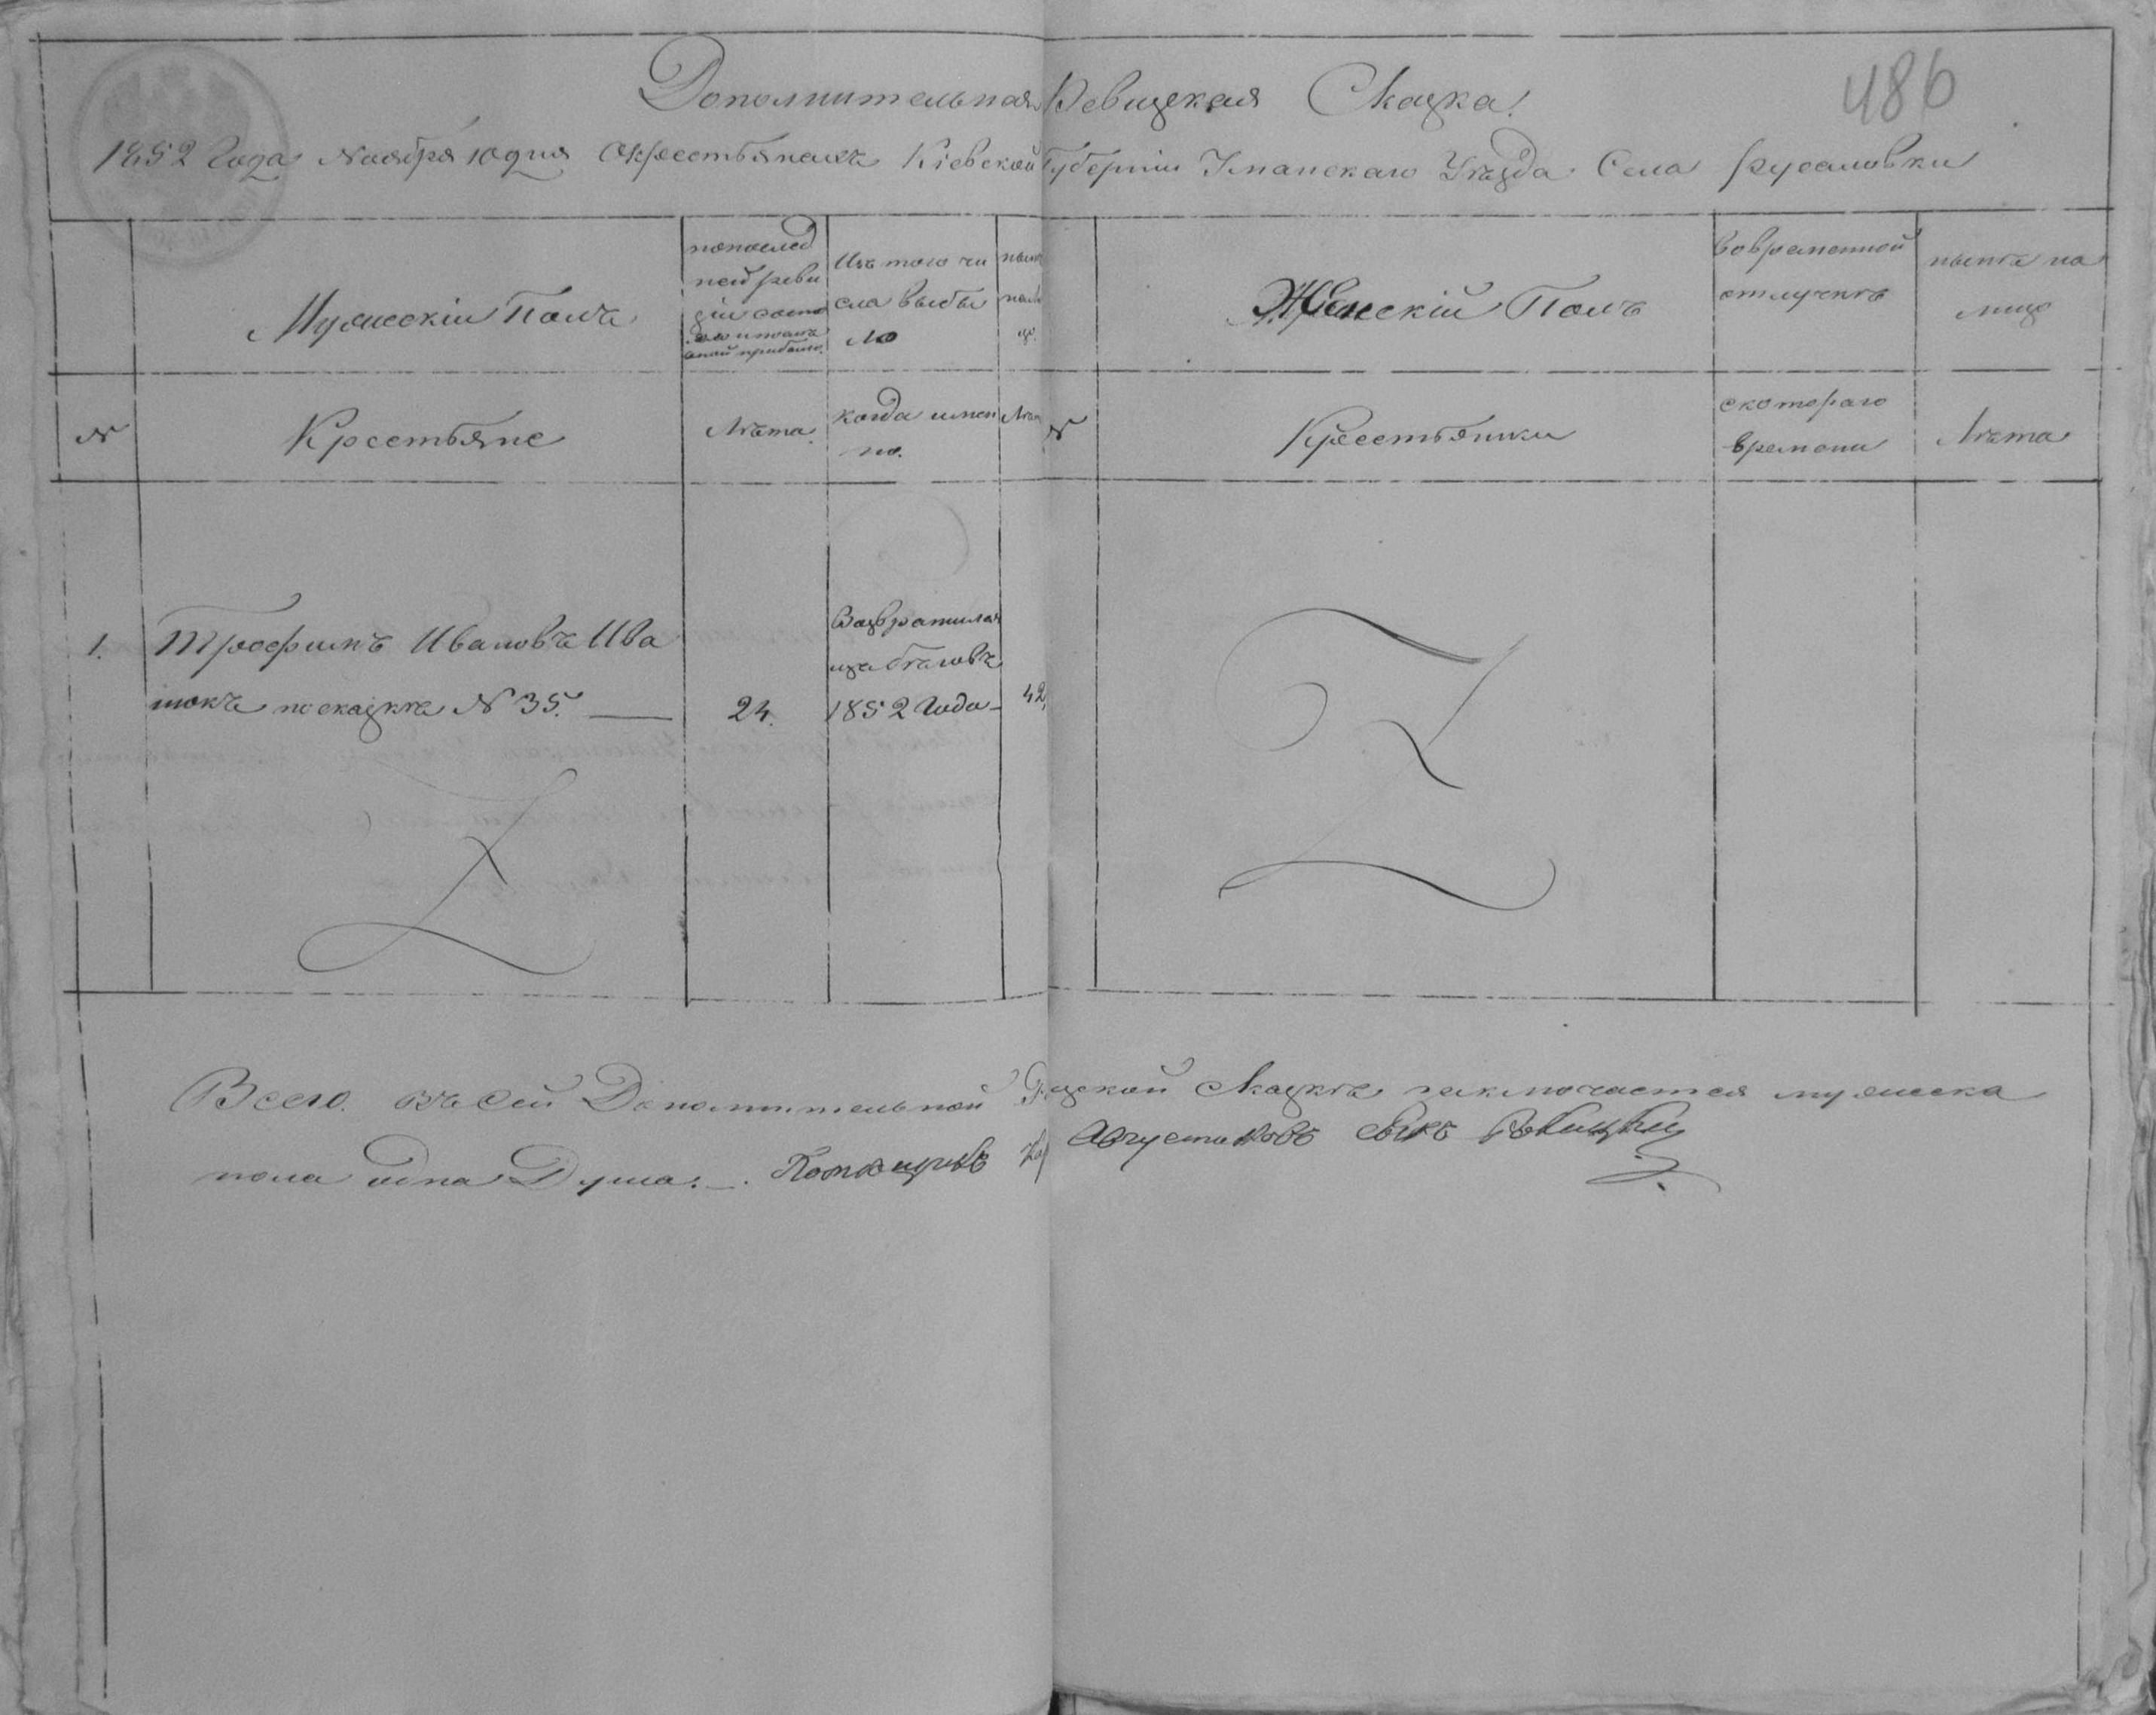 486
Дополнительная Ревизская Сказка!
1852 Года Ноября 10 дня О крестьянахъ Кіевской Губерніи Уманскаго Уѣзда Села Русаловки
Мужескій Полъ
по послед
ней реви
зіи состо
Изъ того чи
сла выбы
ло
Женскій Полъ
Во временной
отлучкѣ
нынѣ на
лицо
№
Крестьяне
Лѣта.
когда имен
но.
Лѣта
№
Крестьянки
с котораго
времени
Лѣта
1.
Трофимъ Ивановъ Ива
шокъ по сказкѣ № 35.
24.
Возвратился
изъ бѣговъ
1852 Года
42,
Всего въ сей Дополнительной Сказкѣ заключается мужеска
пола одна Душа. Августиновъ сынъ